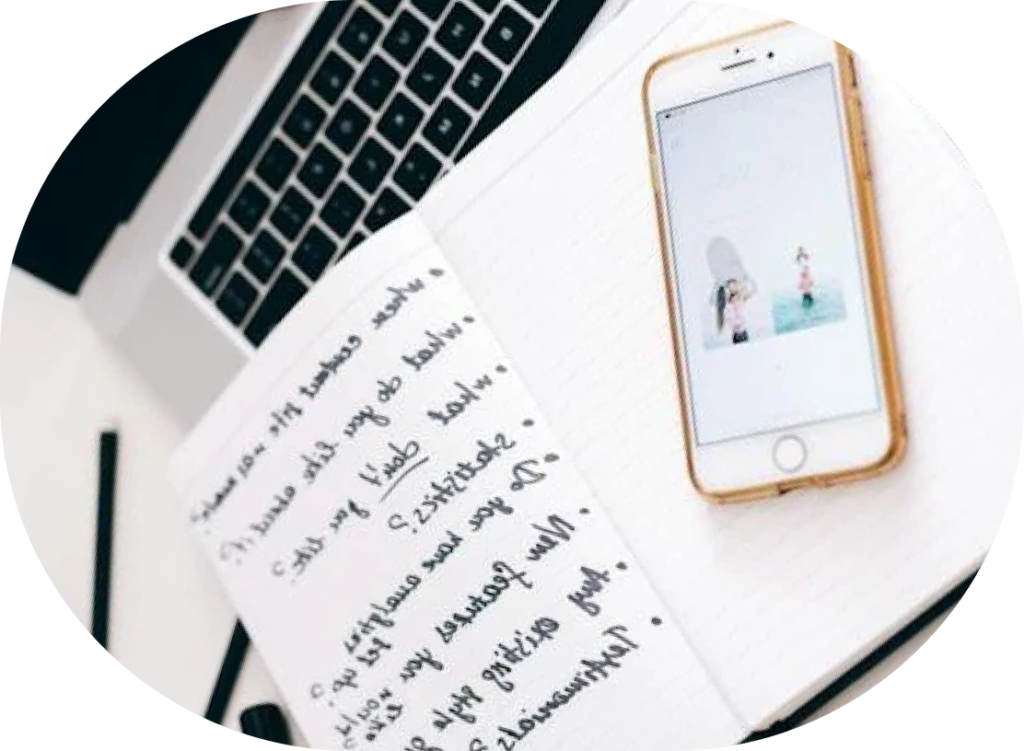 • when current site was
• what do you like about it?
• what don't you like?
• Statistics?
• Do you have analytics
set up?
• New features you
would like?
• Any existing style
• Testimonials?